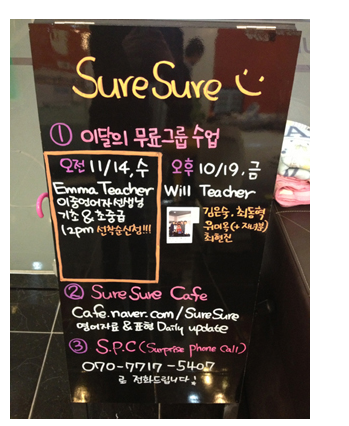 SureSure
① 이달의 무료그룹수업
오전 11/14, 수
Emma Teacher
이중언어자선생님
기초 & 초중급
12pm 선착순신청!!!
오후 10/19, 금
Will Teacher
김은숙, 최동혁
유미옥(+자녀분)
최현진
② SureSure Cafe
Cafe.naver.com/SureSure
영어자료 & 표현 Daily update
③ S.P.C (Surprise phone call)
070-7717-5407
로 전화드립니다!